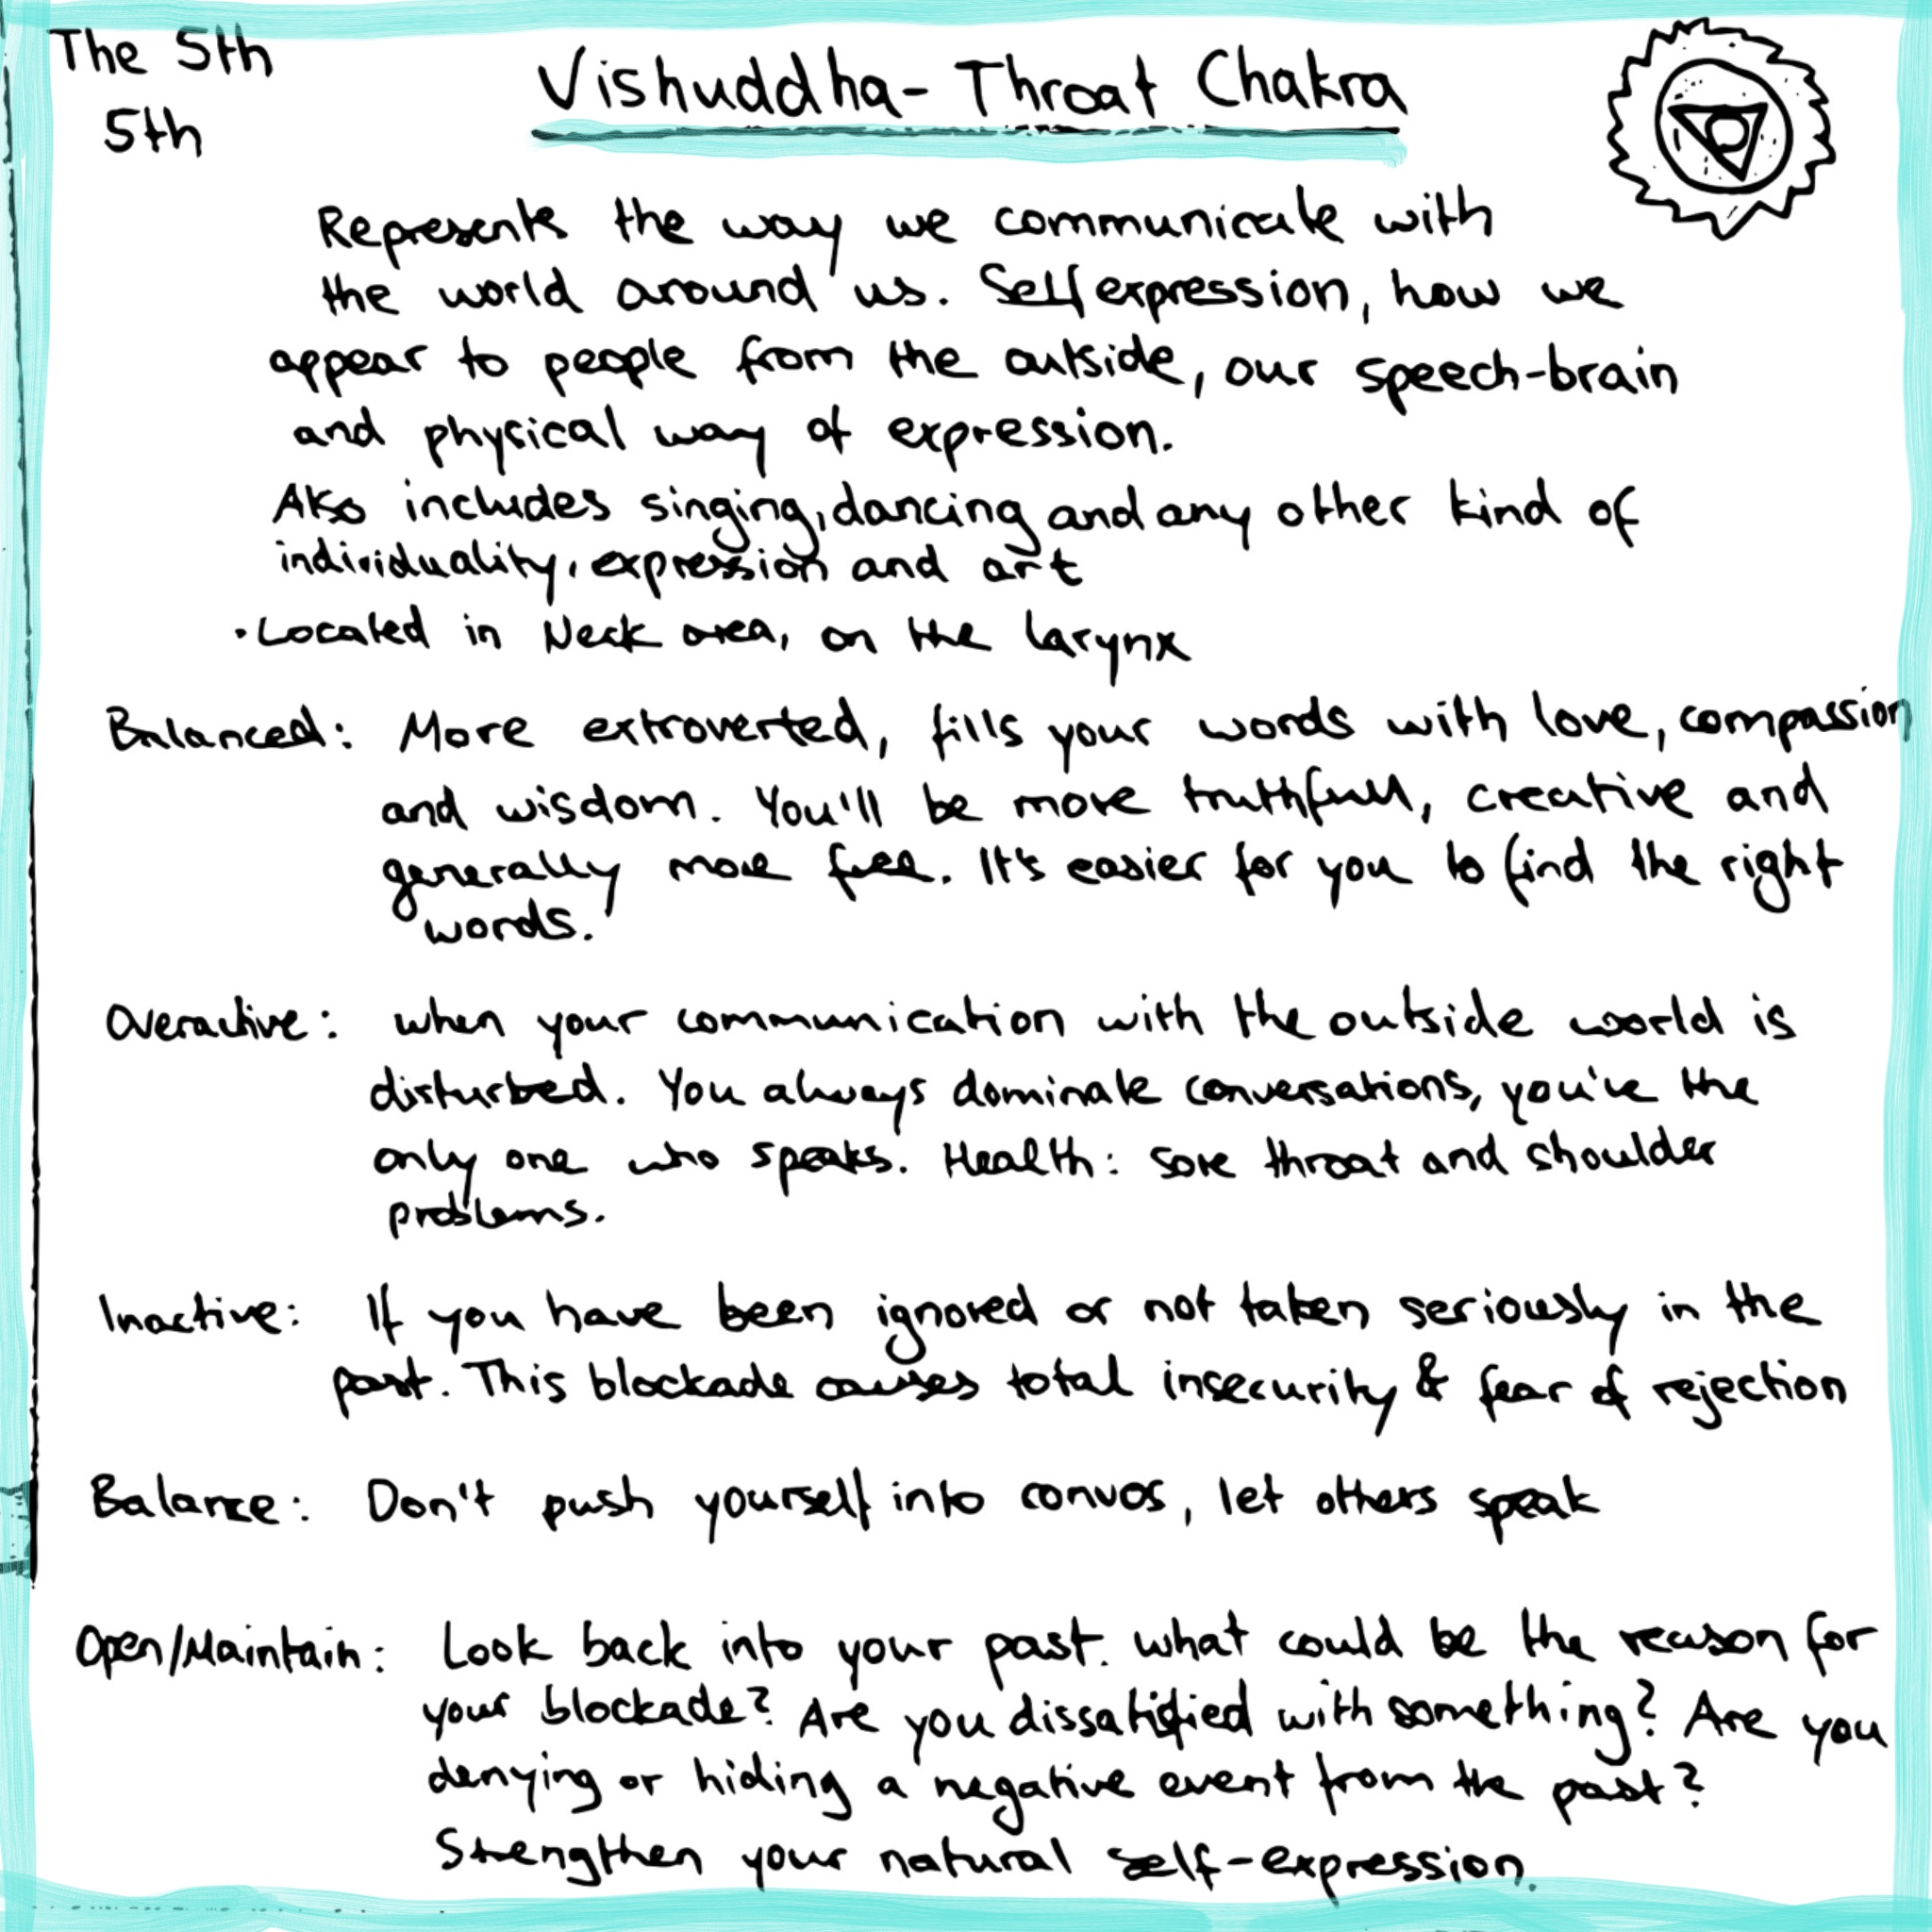 The 5th
5th
Vishuddha - Throat Chakra
Represents the way we communicate with
the world around us. Self expression, how we
appear to people from the outside, our speech-brain
and physical way of expression.
Also includes singing, dancing and any other kind of
individuality, expression and art
· Located in Neck area, on the larynx
Balanced: More extroverted, fills your words with love, compassion
and wisdom. You'll be more truthfull, creative and
generally more free. It's easier for you to find the right
words.
Overactive: when your communication with the outside world is
disturbed. You always dominate conversations, you're the
only one who speaks. Health: sore throat and shoulder
problems.
Inactive: If you have been ignored or not taken seriously in the
past. This blockade causes total insecurity & fear of rejection
Balance: Don't push yourself into convos, let others speak
Open/Maintain: Look back into your past. what could be the reason for
your blockade? Are you dissatisfied with something? Are you
denying or hiding a negative event from the past?
Strengthen your natural self-expression.